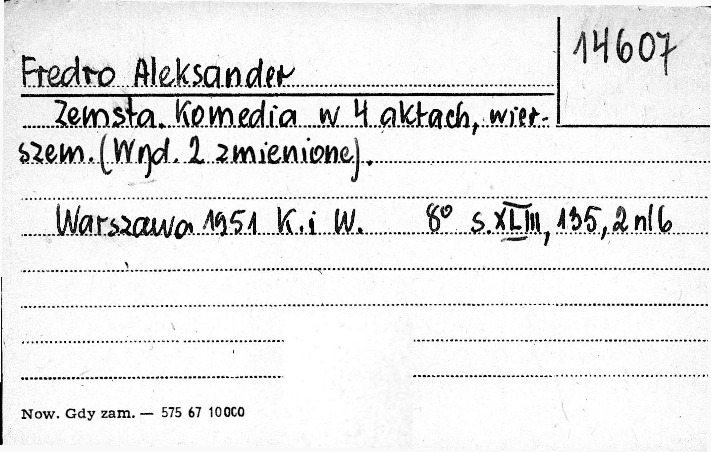 14607
Fredro Aleksander
Zemsta. Komedia w 4 aktach, wier-
szem. (Wyd. 2 zmienione).
Warszawa 1951 K. i W. 8° s. XLIII, 135, 2 nlb
Now. Gdy zam. — 575 67 10000